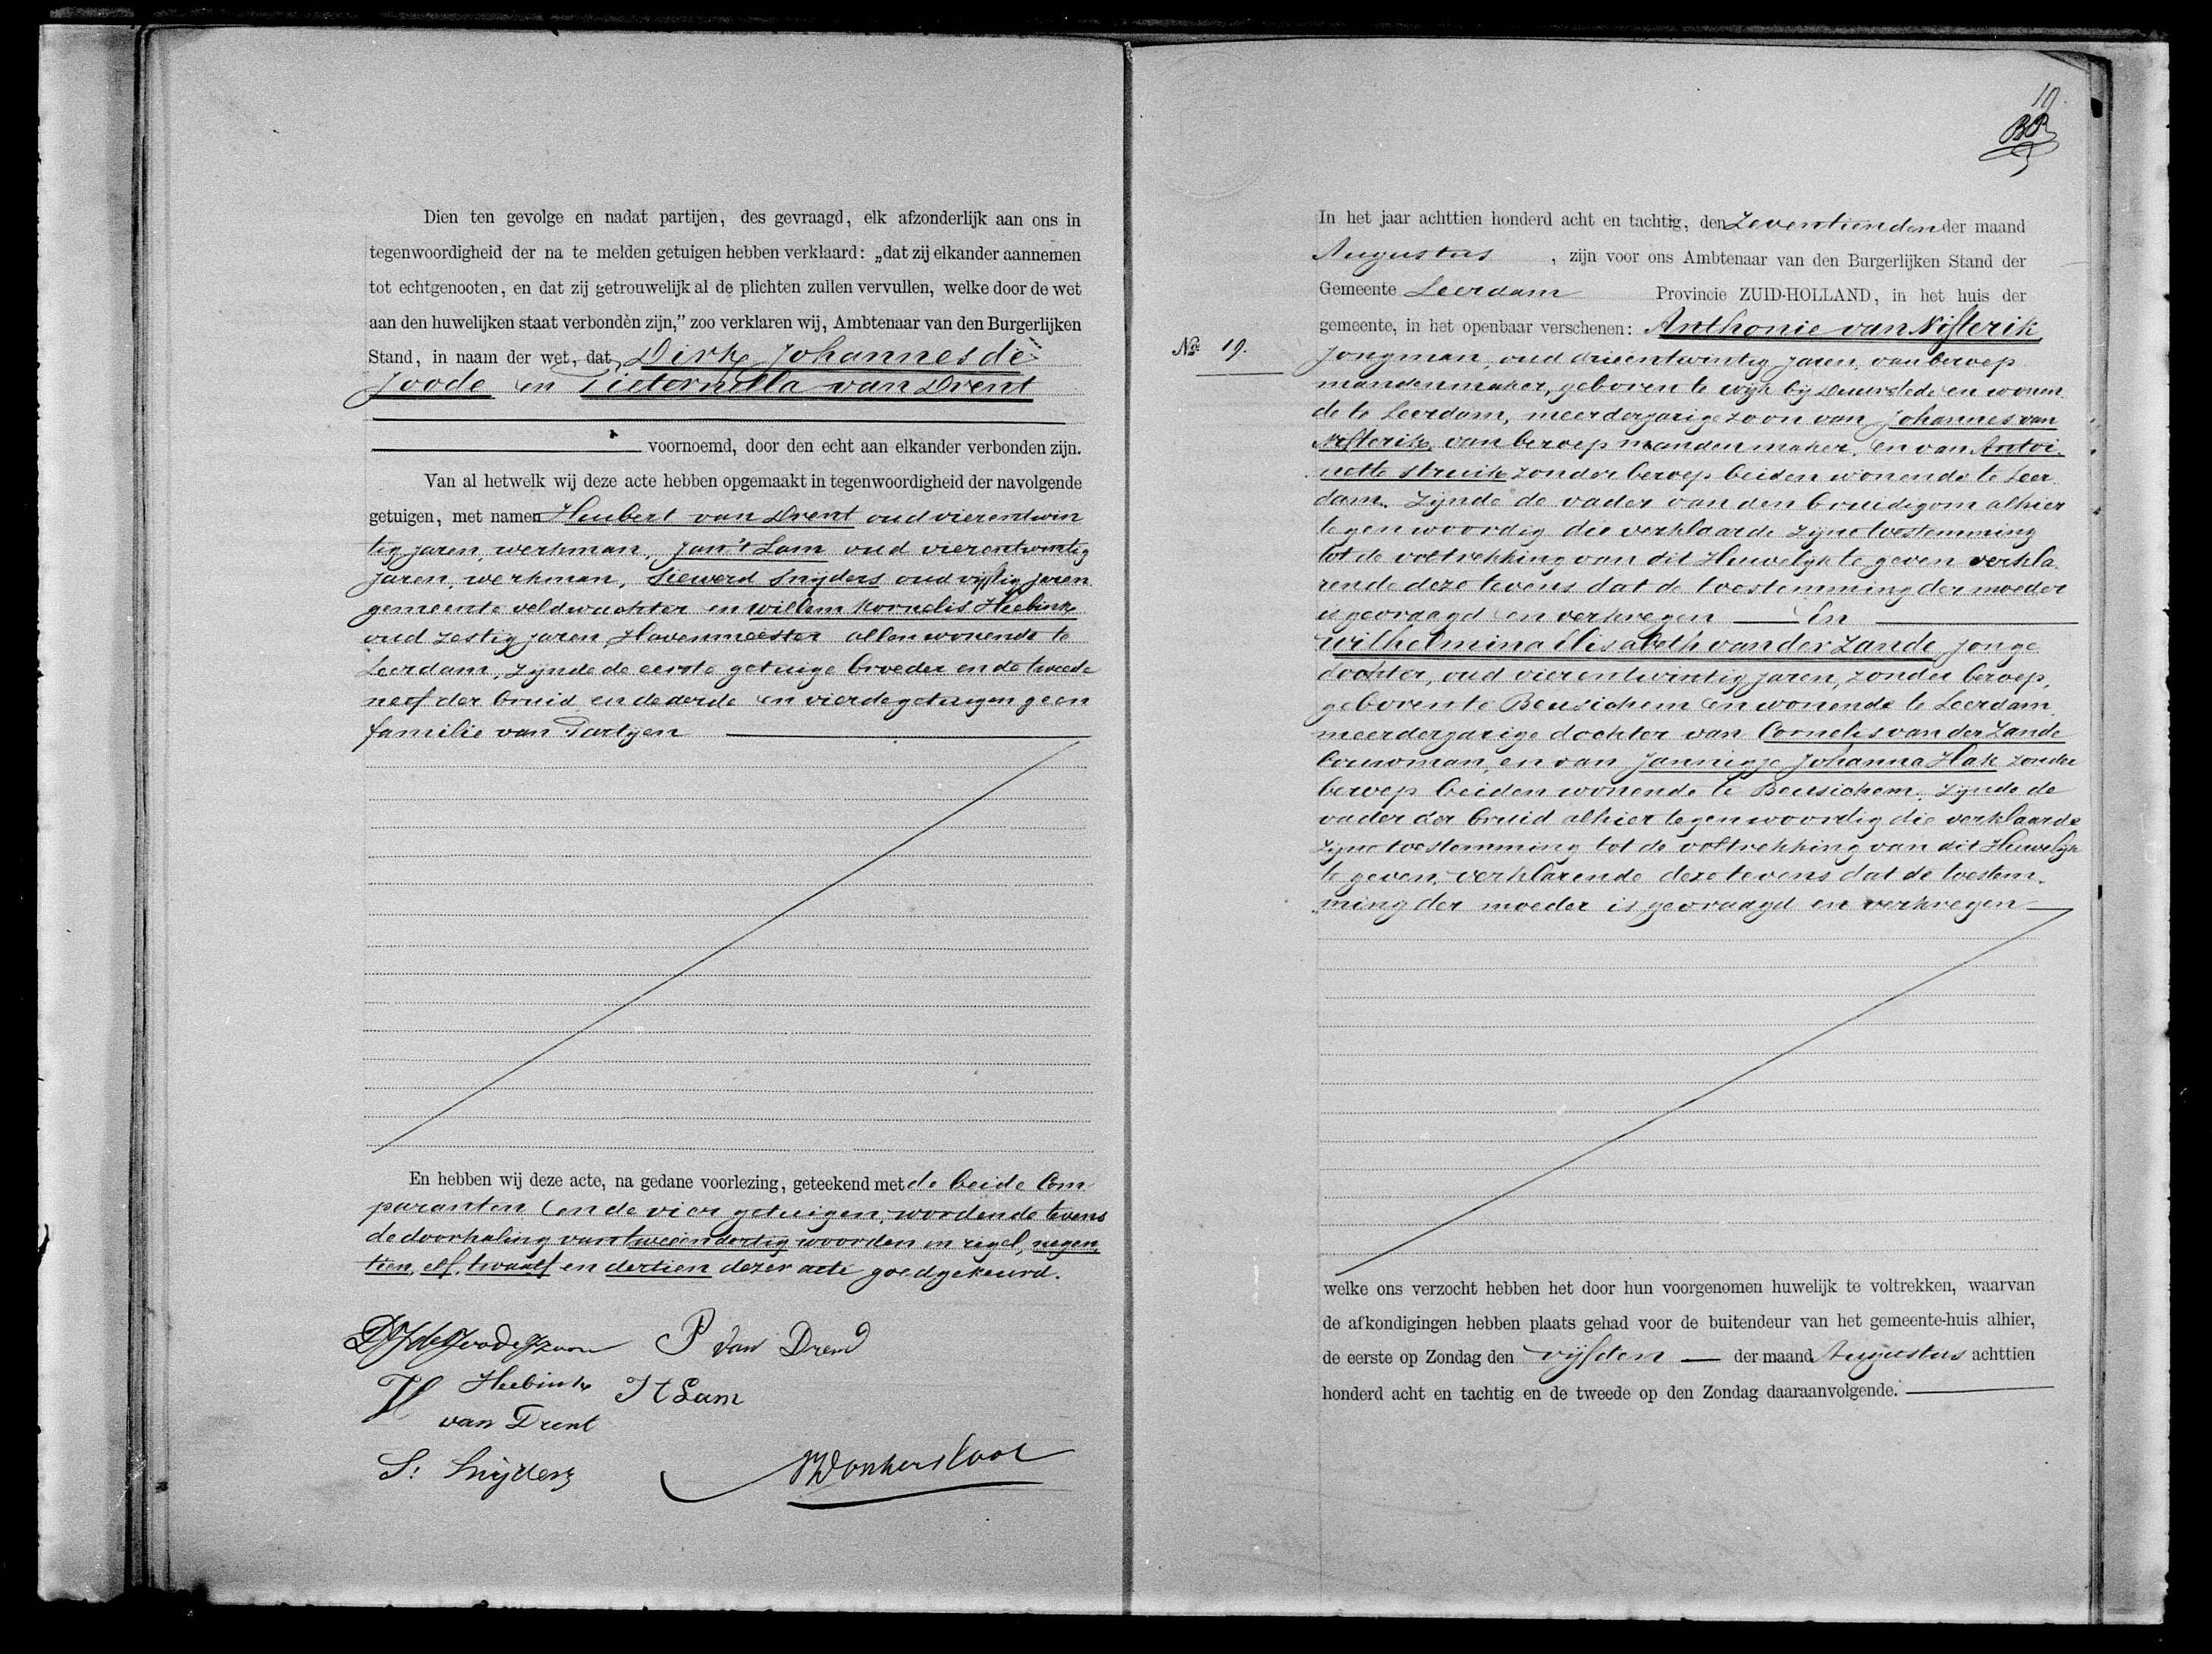 Dien ten gevolge en nadat partijen, des gevraagd, elk afzonderlijk aan ons in
tegenwoordigheid der na te melden getuigen hebben verklaard: „dat zij elkander aannemen
tot echtgenooten, en dat zij getrouwelijk al de plichten zullen vervullen, welke door de wet
aan den huwelijken staat verbonden zijn,” zoo verklaren wij, Ambtenaar van den Burgerlijken
Stand, in naam der wet, dat Dirk Johannes de
Joode en Pieternella van Drent
voornoemd, door den echt aan elkander verbonden zijn.
Van al hetwelk wij deze acte hebben opgemaakt in tegenwoordigheid der navolgende
getuigen, met namen Huibert van Drent oud vierentwin
tig jaren, werkman, Jan 't Lam oud vierentwintig
jaren, werkman, Siewerd Snijders oud vijftig jaren
gemeente veldwachter en willem Kornelis Heebink
oud zestig jaren, Havenmeester allen wonende te
Leerdam, zijnde de eerste getuige broeder en de tweede
neef der bruid en de derde en vierde getuigen geen
familie van Partijen
En hebben wij deze acte, na gedane voorlezing, geteekend met de beide Com
paranten en de vier getuigen, wordende tevens
de doorhaling van tweeendertig woorden in regel, negen,
tien, elf, twaalf en dertien dezer acte goedgekeurd.
P van Drend
Heebink
H
van Drent
J t Lam
S: Snijders
Donkersloot
19.
No. 19.
In het jaar achttien honderd acht en tachtig, den Zeventienden der maand
Augustus, zijn voor ons Ambtenaar van den Burgerlijken Stand der
Gemeente Leerdam Provincie ZUID-HOLLAND, in het huis der
gemeente, in het openbaar verschenen: Anthonie van Nisterik
Jongman, oud drieentwintig jaren, van beroep
mandenmaker, geboren te wijk bij Duurstede en wonen
de te Leerdam, meerderjarige zoon van Johannes van
Nisterik, van beroep mandenmaker, en van Antoi
nette Struik zonder beroep beiden wonende te Leer
dam. Zijnde de vader van den bruidigom alhier
tegenwoordig die verklaarde zijne toestemming
tot de voltrekking van dit Huwelijk te geven verkla
rende deze tevens dat de toestemming der moeder
is gevraagd en verkregen En
Wilhelmina Elisabeth van der Zande, jonge
dochter, oud vierentwintig jaren, zonder beroep,
geboren te Beusichem en wonende te Leerdam
meerderjarige dochter van Cornelis van der Zande
bouwman, en van Jannigje Johanna Hak zonder
beroep beiden wonende te Beusichem. Zijnde de
vader der bruid alhier tegenwoordig die verklaarde
zijne toestemming tot de voltrekking van dit Huwelijk
te geven, verklarende deze tevens dat de toestem
ming der moeder is gevraagd en verkregen
welke ons verzocht hebben het door hun voorgenomen huwelijk te voltrekken, waarvan
de afkondigingen hebben plaats gehad voor de buitendeur van het gemeente-huis alhier,
de eerste op Zondag den vijfden der maand Augustus achttien
honderd acht en tachtig en de tweede op den Zondag daaraanvolgende.